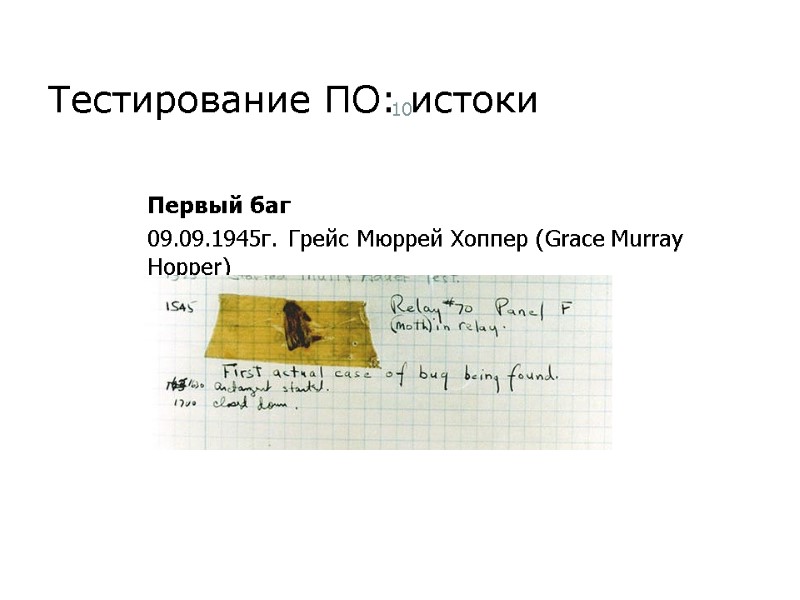 Тестирование ПО: истоки
10
Первый баг
09.09.1945г. Грейс Мюррей Хоппер (Grace Murray
Hopper)
Started Adder Test.
1545
Relay #70 Panel F
(moth) in relay.
First actual case of bug being found.
1630 antangent started.
1700 closed down.